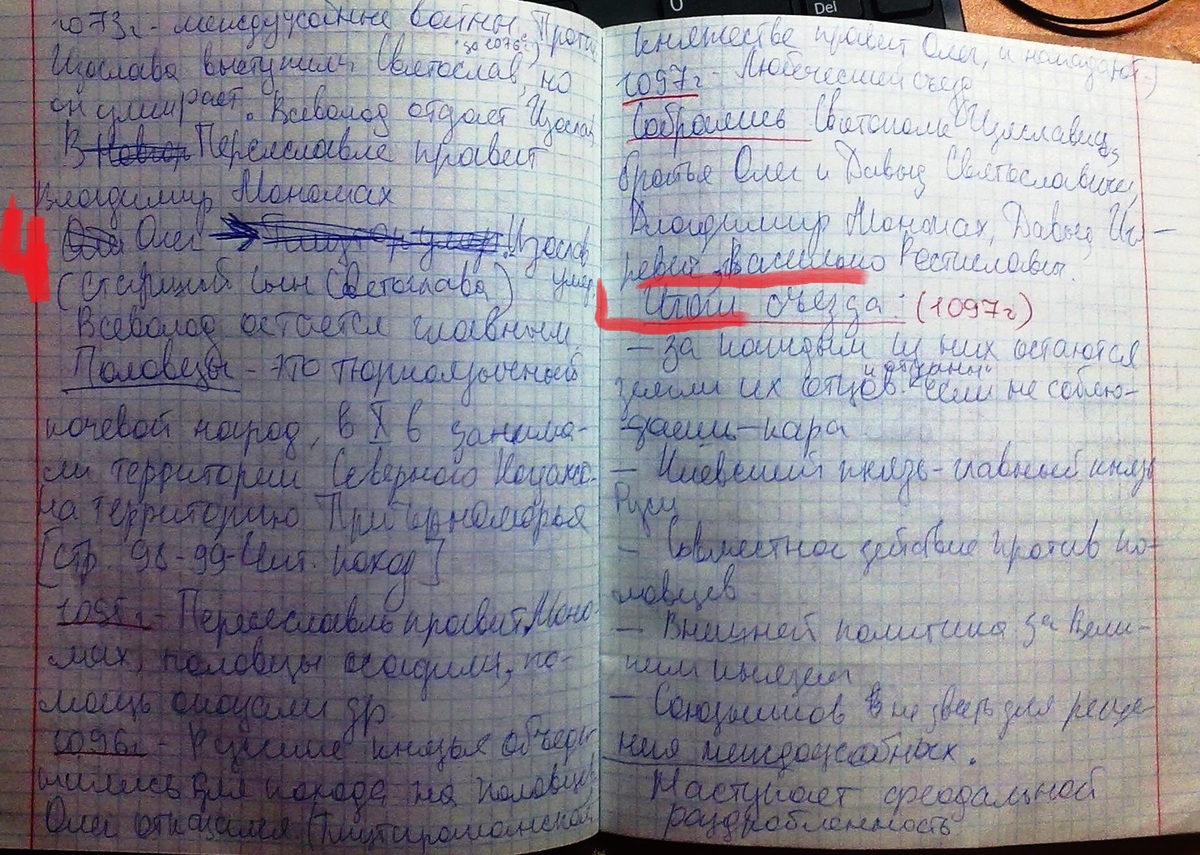 1073г. - междуусобные войны. Против
(за 1076г)
Изослава выступили Святослав, но
он умирает. Всеволод отдаёт Изослав
В Переяславле правит
Владимир Мономах
4
Олег Изослав
(старший сын Святослава) умер.
Всеволод остается главным.
Половецы - это тюркоязычный
кочевой народ, в X в занима-
ли территории Северного
на территорию Причерноморья
[стр. 98-99- поход]
1095г - Переяславль правит Моно-
мах, половцы осадили, по-
мощь оказали др.
1096г - Русские князья объеди-
нились для похода на половцев
Олег отказался (Тмутараканской
княжестве правит Олег, и нападают)
1097г - Любеческий съезд
Собрались Святополк Изяславич,
братья Олег и Давыд Святославичи,
Владимир Мономах, Давыд Иг-
ревич, Василько Ростиславич.
Итоги съезда: (1097г)
- за каждым из них остаются
земли их отцов если не соблю-
даешь-кара
- Киевский князь-главный князь
Руси
- Совместное действие против по-
ловцев
- Внешней политика за Вели-
ким князем
- Союзников не звать для реше-
ния междоусобных.
Наступает феодальной
раздробленность
Del